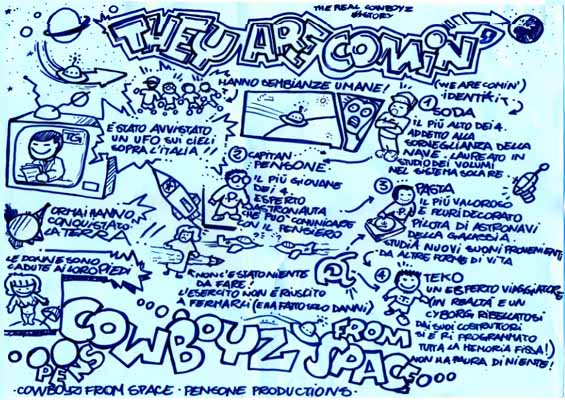 THE REAL COWBOYZ
HISTORY
THEY ARE COMIN'
HANNO SEMBIANZE UMANE!
(WE ARE COMIN')
IDENTIKIT
TG
È STATO AVVISTATO
UN UFO SUI CIELI
SOPRA L'ITALIA!!
1 SODA
IL PIÙ ALTO DEI 4.
ADDETTO ALLA
SORVEGLIANZA DELLA
NAVE. LAUREATO IN
STUDIO DEI VOLUMI
NEL SISTEMA SOLARE
2 CAPITAN
PENSONE
IL PIÙ GIOVANE
DEI 4.
ESPERTO
ASTRONAUTA
CHE PUÒ COMUNICARE
CON IL PENSIERO
3 PASTA
IL PIÙ VALOROSO
E PLURIDECORATO
PILOTA DI ASTRONAVI
DELLA GALASSIA
STUDIA NUOVI SUONI PROVENIENTI
DA ALTRE FORME DI VITA
ORMAI HANNO
CONQUISTATO
LA TERRA
LE DONNE SONO
CADUTE AI LORO PIEDI
NON C'È STATO NIENTE
DA FARE!
L'ESERCITO NON È RIUSCITO
A FERMARLI (E HA FATTO SOLO DANNI)
4 TEKO
UN ESPERTO VIAGGIATORE
(IN REALTÀ È UN
CYBORG RIBELLATOSI
DAI SUOI COSTRUTTORI
SI È RIPROGRAMMATO
TUTTA LA MEMORIA FISSA!)
NON HA PAURA DI NIENTE!
COWBOYZ FROM SPACE
PENS
·COWBOYZ FROM SPACE · PENSONE PRODUCTIONS·